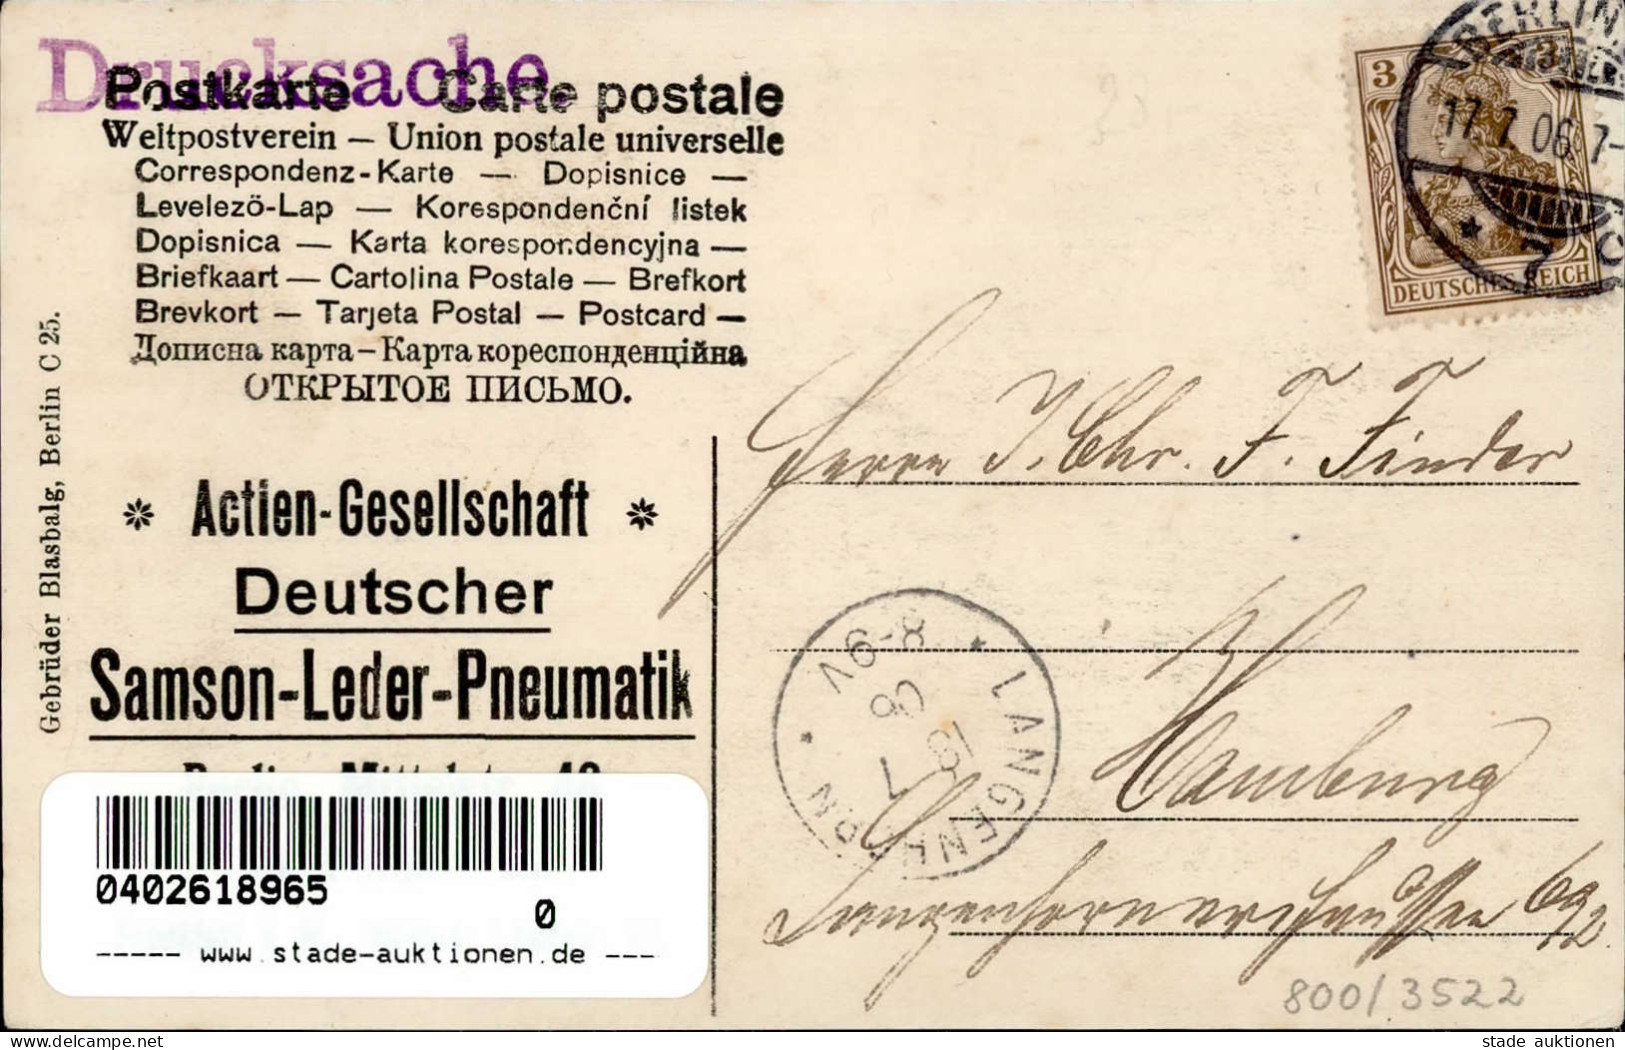 Drucksache.
Postkarte Carte postale
Weltpostverein – Union postale universelle
Correspondenz-Karte — Dopisnice —
Levelező-Lap — Korespondenční listek
Dopisnica — Karta korespondencyjna —
Briefkaart — Cartolina Postale — Brefkort
Brevkort — Tarjeta Postal — Postcard —
Дописна карта – Карта кореспонденційна
ОТКРЫТОЕ ПИСЬМО.
Gebrüder Blasbalg, Berlin C 25.
* Actien-Gesellschaft *
Deutscher
Samson-Leder-Pneumatik
0402618965
0
----- www.stade-auktionen.de ---
BERLIN
17.7.06.7-
* 7 C
3 3
DEUTSCHES REICH
Herrn J. Chr. F. Finder
Hamburg
Langenhornerchaussee 69/2
* LANGENHORN *
18 7
06
8-9V
800/3522
stade auktionen